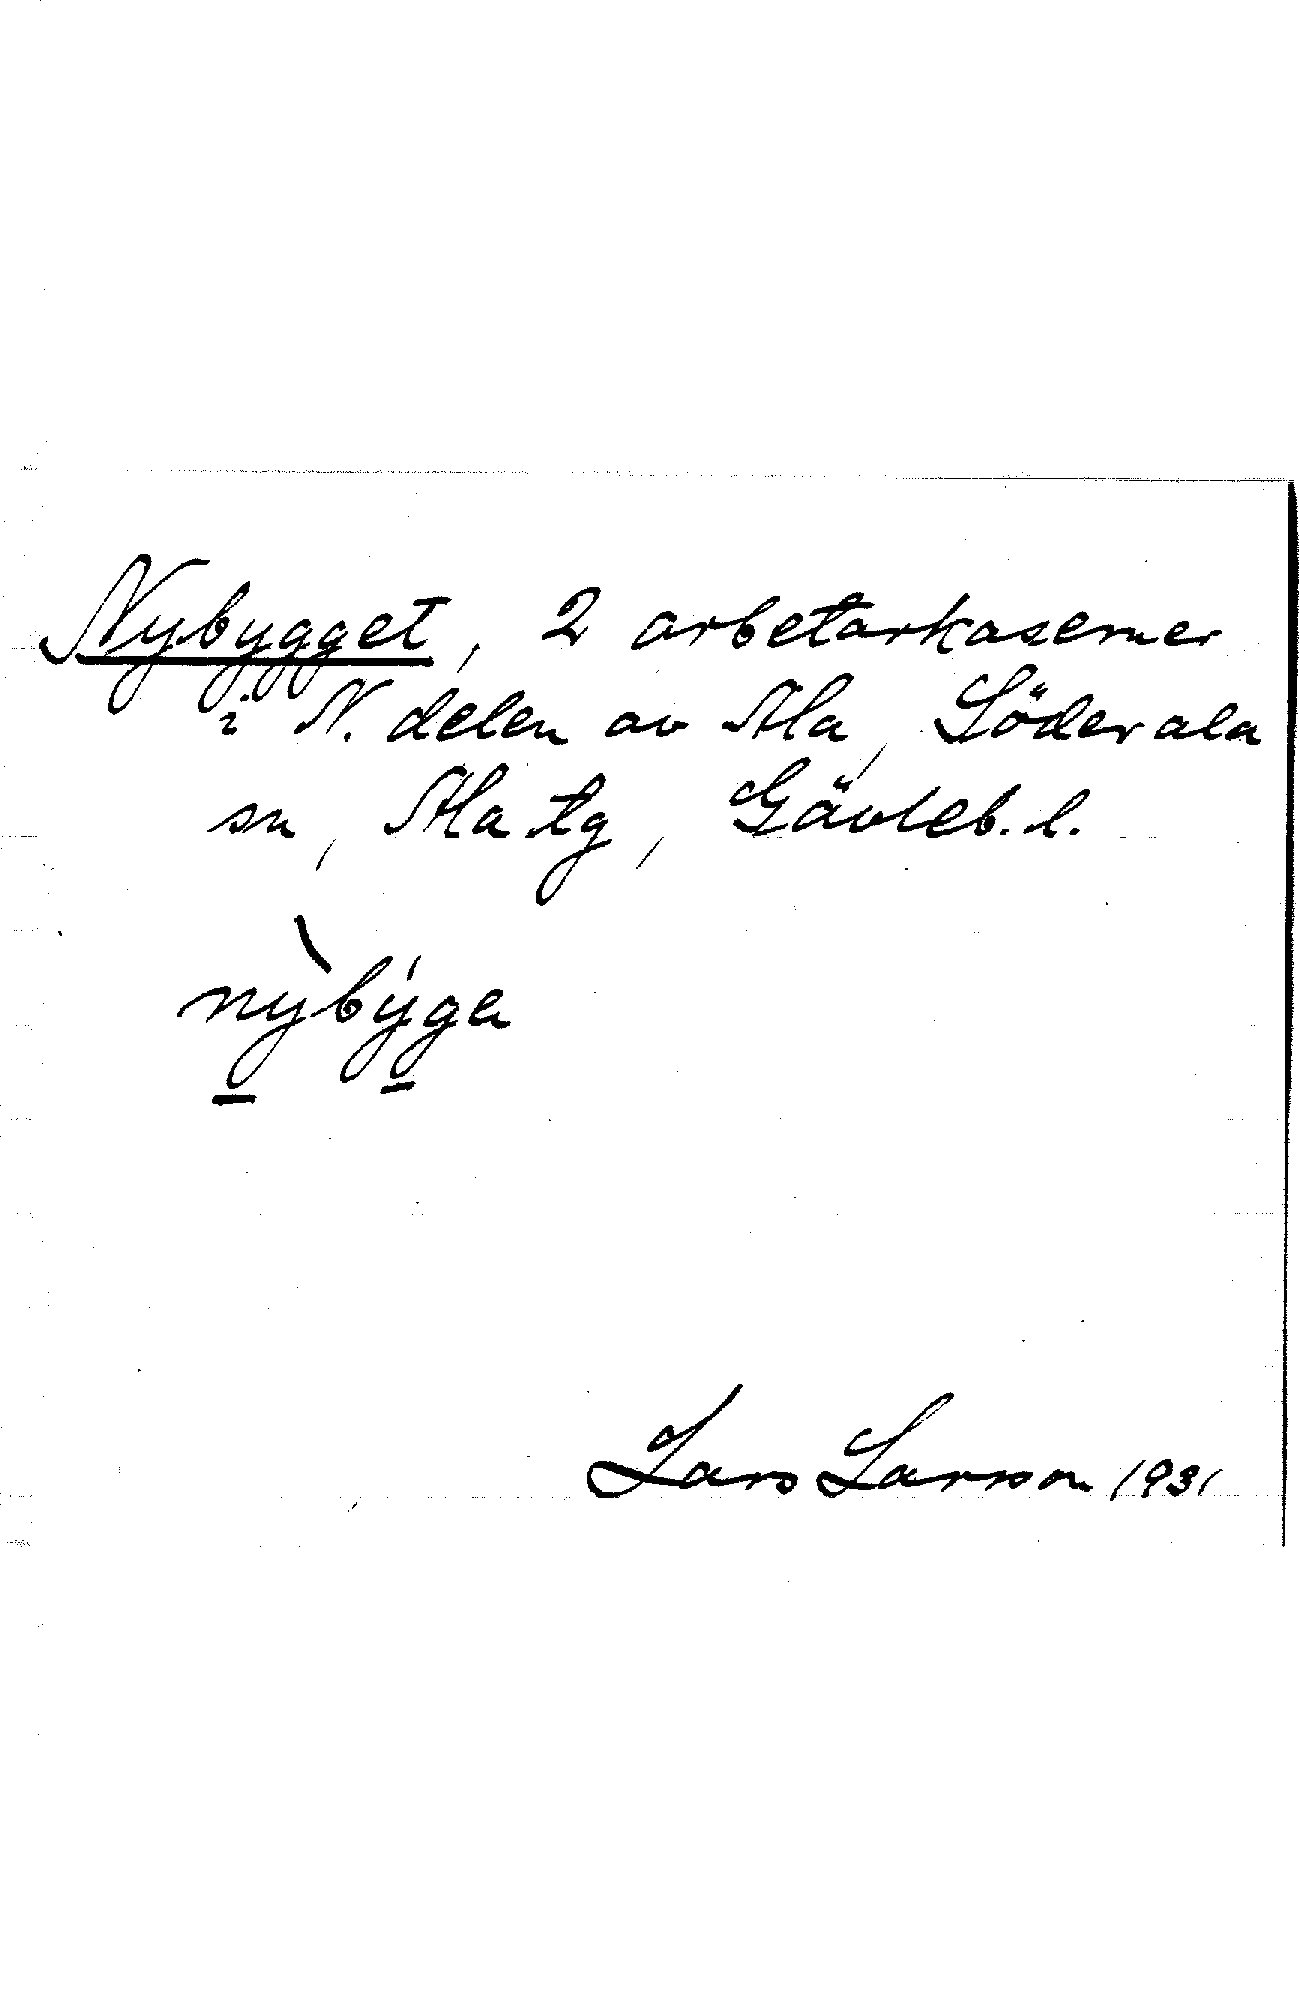 Nybygget, 2 arbetarkaserner
i N. delen av Ala, Söderala
sn, Ala tg, Gävleb. l.
nỳbýga
Lars Larsson 1931